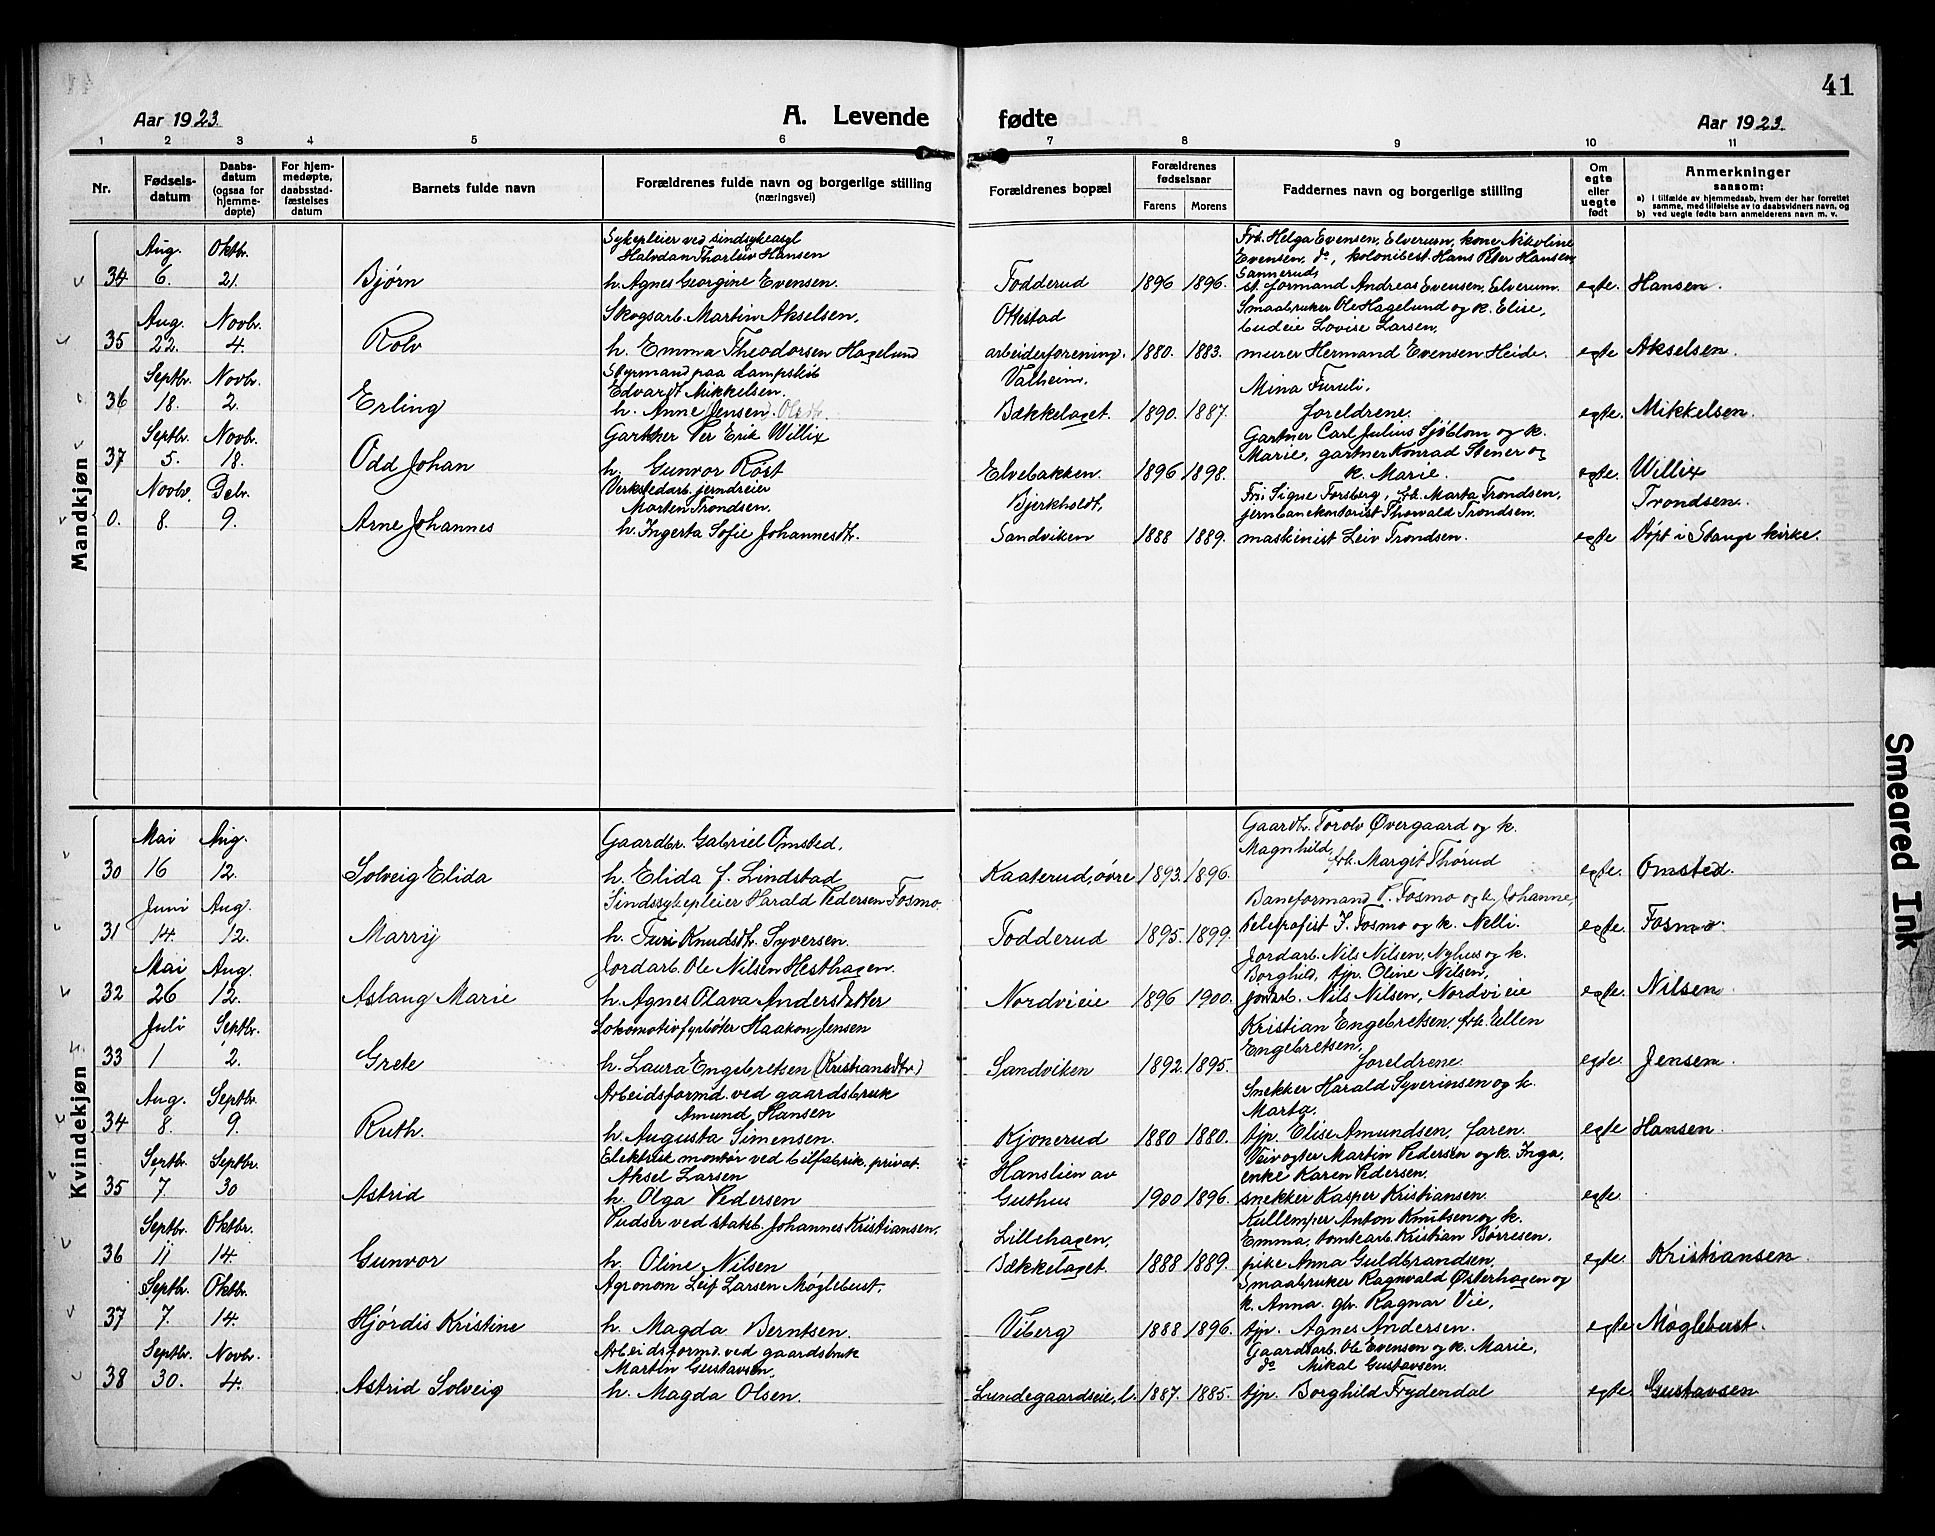 41
Aar 1923.
A. Levende
fødte
Aar 1923.
1 2 3 4 5 6 7 8 9 10 11
Nr.
Fødsels-
datum
Daabs-
datum
(ogsaa for
hjemme-
døpte)
For hjem-
medøpte,
daabsstad-
fæstelses
datum
Barnets fulde navn
Forældrenes fulde navn og borgerlige stilling
(næringsvei)
Forældrenes bopæl
Forældrenes
fødselsaar
Farens Morens
Faddernes navn og borgerlige stilling
Om
egte
eller
uegte
født
Anmerkninger
saasom:
a) I tilfælde av hjemmedaab, hvem der har forrettet
samme, med tilføielse av to daabsvidners navn, og
b) ved uegte fødte barn anmelderens navn m. v.
Mandkjøn
Aug. Oktbr.
34 6. 21.
Bjørn
Sykepleier ved sindsykeasyl
Halvdan Thorleiv Hansen
h. Agnes Georgine Evensen.
Todderud 1896 1896.
Frk. Helga Evensen, Elverum, kone Nikoline
Evensen, do, kolonibest. Hans Peter Hansen,
Sannerud,
st. formand Andreas Evensen, Elverum.
egte. Hansen.
Aug. Novbr.
35 22. 4.
Rolv
Skogsarb. Martin Akselsen,
h. Emma Theodorsen Hagelund
Ottestad
arbeiderforening. 1880. 1883.
Smaabruker Ole Hagelund og k. Elise,
budeie Lovise Larsen,
murer Hermand Evensen Heide.
egte Akselsen.
Septbr. Novbr.
36 18. 2.
Erling
Styrmand paa dampskib
Edvardt Mikkelsen.
h. Anne Jensen. Olsdtr.
Valheim,
Bækkelaget. 1890. 1887.
Mina Furuli,
foreldrene.
egte. Mikkelsen.
Septbr. Novbr.
37 5. 18.
Odd Johan
Gartner Per Erik Willix
h. Gunvor Röst
Elvebakken. 1896 1898.
Gartner Carl Julius Sjöblom og k.
Marie, gartner Konrad Stener og
k. Marie.
egte. Willix
Novbr. Debr.
0. 8. 9.
Arne Johannes
Verkstedarb. jerndreier
Morten Trondsen.
h. Ingerta Sofie Johannesdtr.
Bjerkholdt,
Sandviken 1888 1889.
Frk. Signe Forsberg, frk. Marta Trondsen,
jernbanekontorist Thorvald Trondsen,
maskinist Leiv Trondsen.
egte
Trondsen.
Döpt i Stange kirke.
Kvindekjøn
Mai Aug.
30 16 12.
Solveig Elida
Gaardbr. Gabriel Omsted.
h. Elida f. Lindstad
Kaaterud, övre 1893. 1896.
Gaardbr. Torolv Övergaard og k.
Magnhild,
frk. Margit Thorud
egte. Omsted.
Juni Aug.
31 14. 12.
Marrij
Sindssykepleier Harald Pedersen Fosmo
h. Turi Knudsdtr. Syversen.
Todderud 1895. 1899.
Baneformand P. Fosmo og k. Johanne,
telegrafist J. Fosmo og k. Nelli.
egte. Fosmo.
Mai Aug.
32 26 12.
Aslaug Marie
Jordarb. Ole Nilsen Hesthagen.
h. Agnes Olava Andersdatter
Nordvieie 1896 1900.
Jordarb. Nils Nilsen, Nyhus og k.
Borghild, tjp. Oline Nilsen,
jordarb. Nils Nilsen, Nordvieie
egte. Nilsen.
Juli Septbr.
33 1 2.
Grete
Lokomotivfyrböter Haakon Jensen
h. Laura Engebretsen (Kristiansdtr)
Sandviken 1892. 1895.
Kristian Engebretsen, frk. Ellen
Engebretsen,
foreldrene.
egte. Jensen.
Aug. Septbr.
34 8. 9.
Ruth.
Arbeidsformd. ved gaardsbruk
Amund Hansen
h. Augusta Simensen.
Kjonerud 1880 1880.
Snekker Harald Syverinsen og k.
Marta.
tjp. Elise Amundsen, faren.
egte Hansen.
Septbr. Septbr.
35 7. 30
Astrid
Elektrisk montör ved bilfabrik, privat.
Aksel Larsen
h. Olga Pedersen
Hanslien av
Guthus 1900 1896.
Veivogter Martin Pedersen og k. Inga,
enke Karen Pedersen.
snekker Kasper Kristiansen.
egte.
Septbr. Oktbr.
36 11 14.
Gunvor
Pudser ved statsb. Johannes Kristiansen.
h. Oline Nilsen
Lillehagen,
Bækkelaget. 1888 1889.
Kullemper Anton Knutsen og k.
Emma, tomtearb. Kristian Börresen.
pike Anna Guldbrandsen.
egte. Kristiansen.
Septbr. Oktbr.
37 7. 14.
Hjördis Kristine
Agronom Leif Larsen Möglebust.
h. Magda Berntsen.
Viberg 1888 1896.
Smaabruker Ragnvald Österhagen og
k. Anna. gbr. Ragnar Vie,
tjp. Agnes Andersen.
egte Möglebust.
Septbr. Novbr.
38 30. 4.
Astrid Solveig
Arbeidsformd. ved gaardsbruk
Martin Gustavsen,
h. Magda Olsen.
Lundegaardseie, l. 1887. 1885.
Gaardsarb. Ole Evensen og k. Marie,
do Mikal Gustavsen.
tjp. Borghild Frydendal
egte. Gustavsen
Smeared Ink